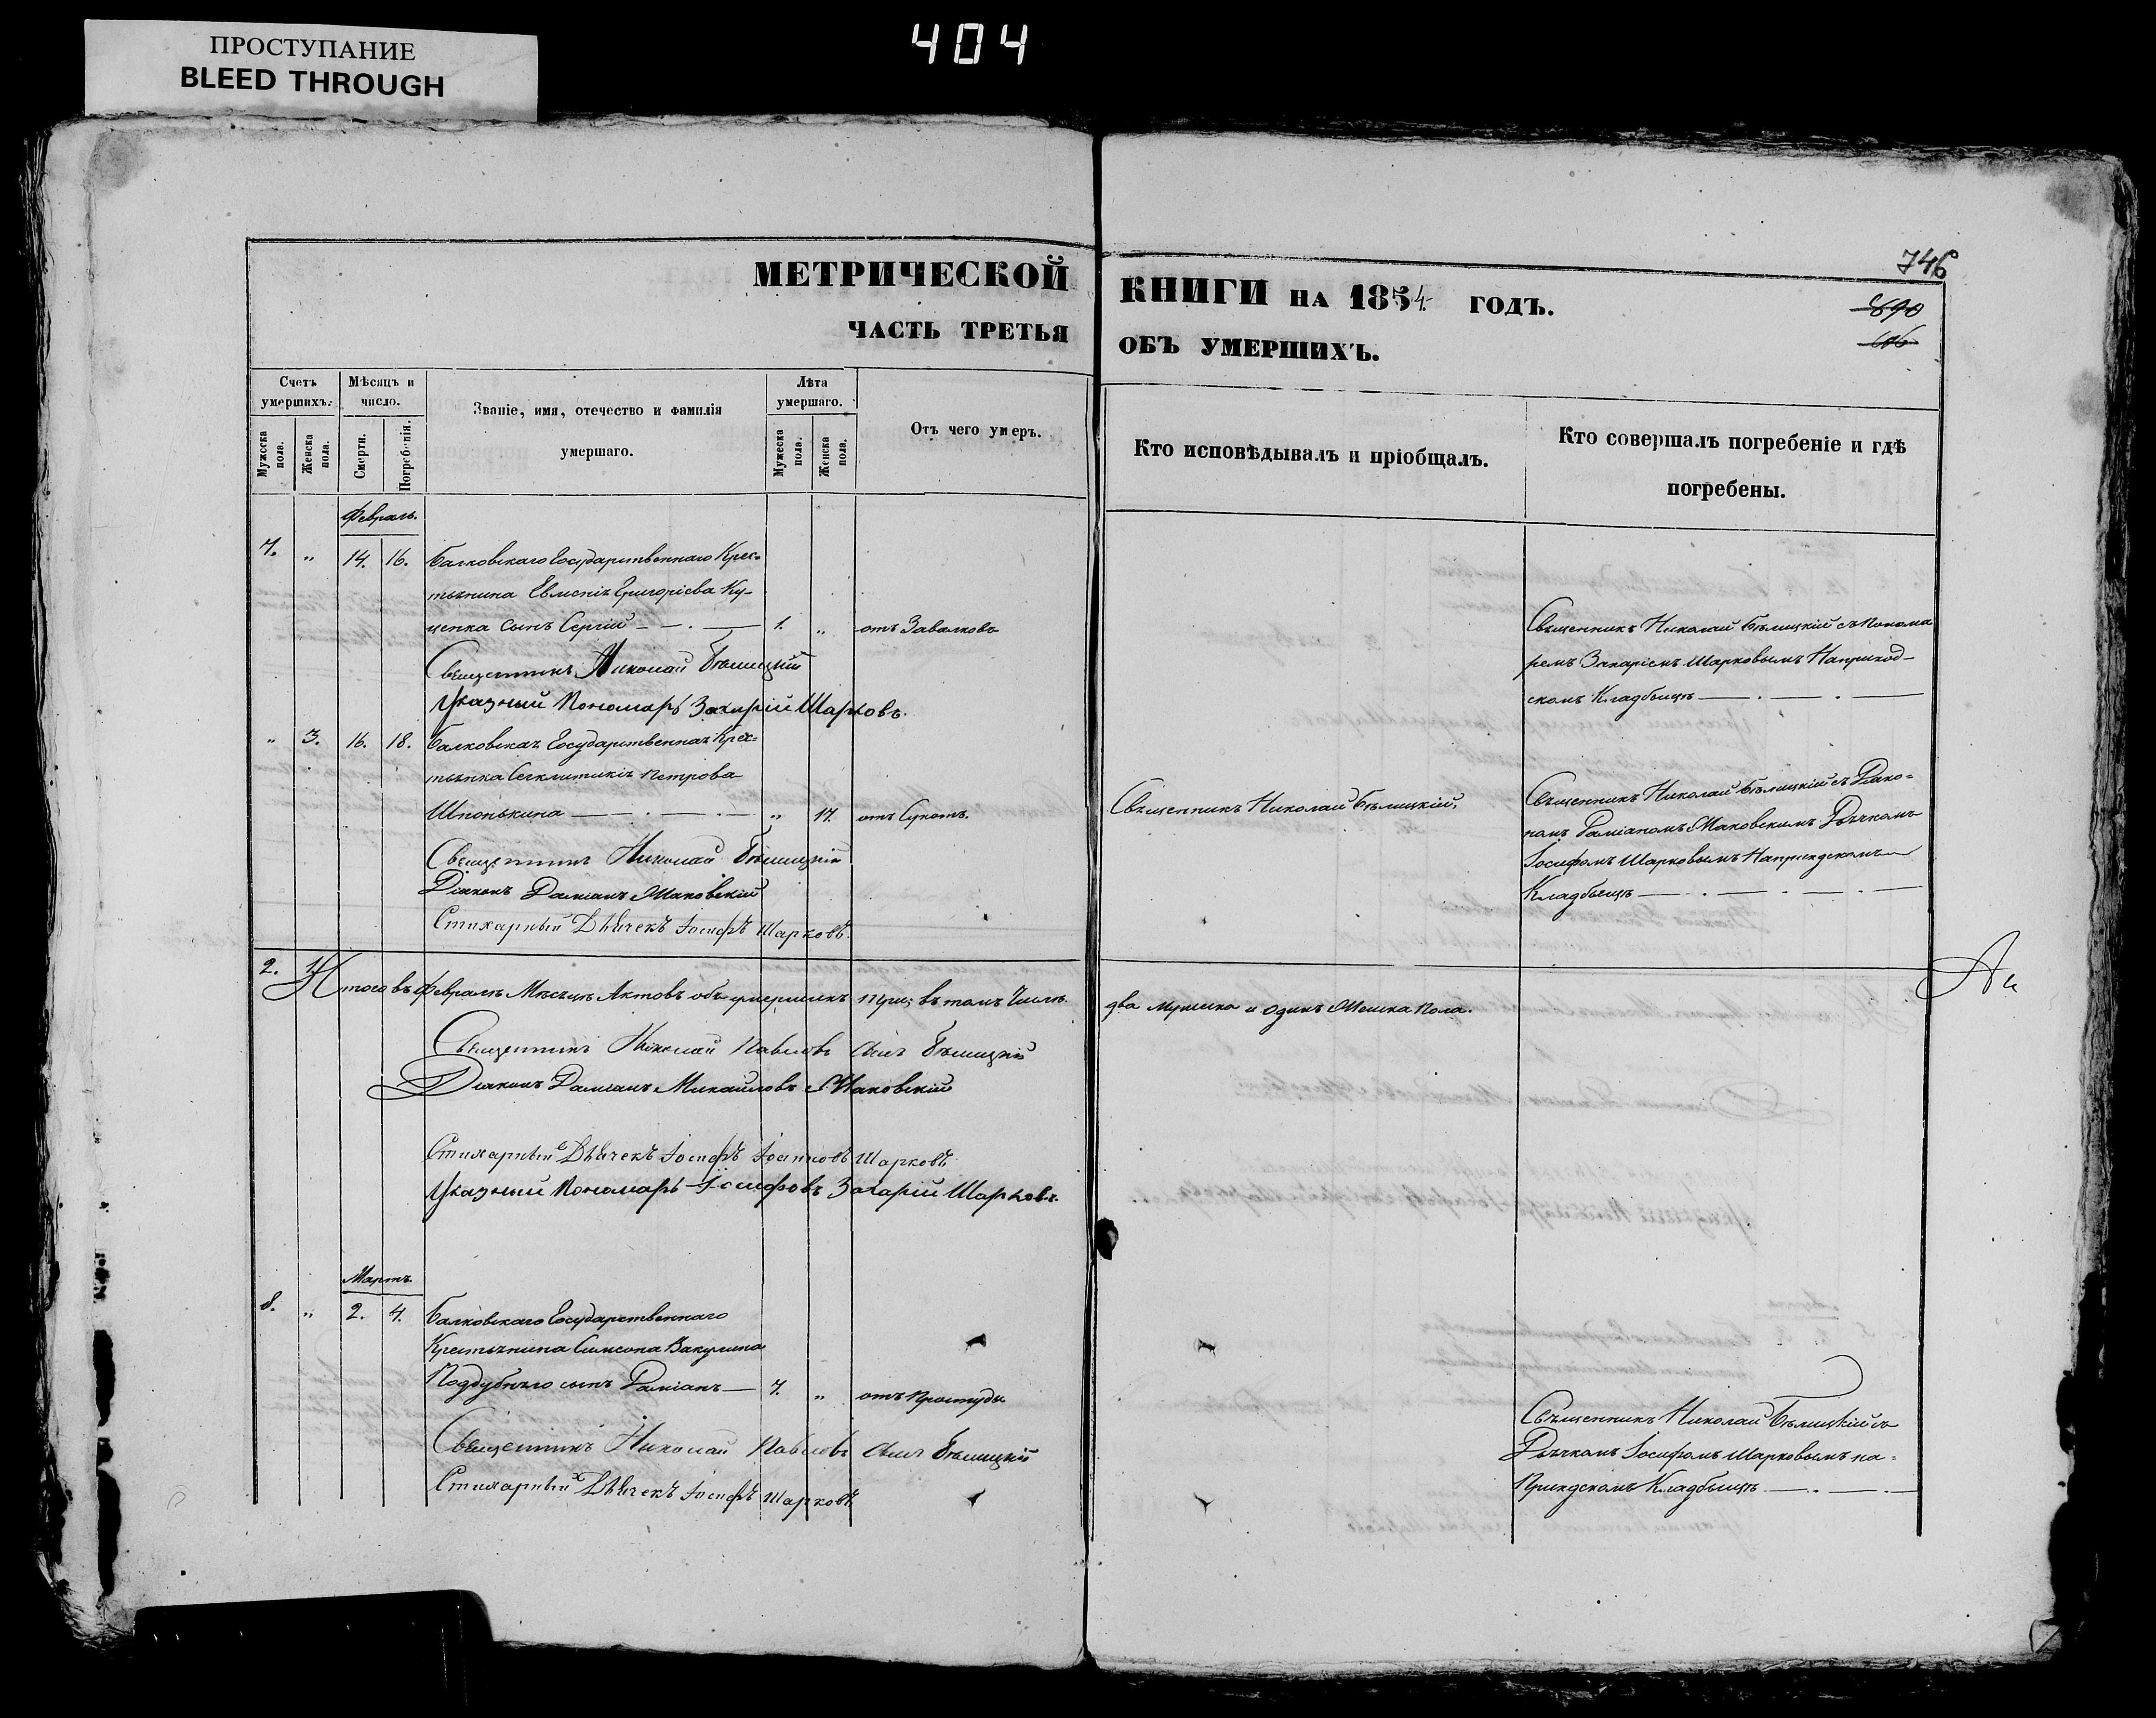 ПРОСТУПАНИЕ
BLEED THROUGH
404
746
МЕТРИЧЕСКОЙ КНИГИ НА 1854 ГОДЪ.
690
ЧАСТЬ ТРЕТЬЯ ОБЪ УМЕРШИХЪ.
Счетъ умершихъ.
Мужеска пола.
Женска пола.
Мѣсяцъ и число.
Смерти.
Погребенія.
Званіе, имя, отечество и фамилія
умершаго.
Лѣта умершаго.
Мужеска пола.
Женска пола.
Отъ чего умеръ.
Кто исповѣдывалъ и пріобщалъ.
Кто совершалъ погребеніе и гдѣ
погребены.
Февраль.
7. " 14. 16. Балковскаго Государственнаго Крес=
тьянина Евменія Григоріева Ку-
ценка сынъ Сергій 1. " отъ Завалковъ
Священникъ Николай Бѣлицкій съ Понома
ремъ Захаріемъ Шарковымъ На приход-
скомъ Кладбищѣ
Священникъ Николай Бѣлицкій
Указный Пономарь Захарій Шарковъ.
" 3. 16. 18. Балковская Государственная Крес=
тьянка Сегклитикія Петрова
Шпонькина " 17. отъ Сухотъ.
Священникъ Николай Бѣлицкій.
Священникъ Николай Бѣлицкій съ Діако=
номъ Даміаномъ Маковскимъ Дьячкомъ
Іосифомъ Шарковымъ На прихдскомъ
Кладбищѣ
Священникъ Николай Бѣлицкій
Діаконъ Даміанъ Маковскій
Стихарный Дьячекъ Іосифъ Шарковъ.
2. 1. Итого въ Февралѣ Мѣсяцѣ Актовъ объ умершихъ три; въ томъ Числѣ два мужска и одинъ Женска Пола.
Священникъ Николай Павловъ сынъ Бѣлицкій
Діаконъ Даміанъ Михайловъ Маковскій
Стихарный Дьячекъ Іосифъ Шарковъ
Указный Пономарь Іосифовъ Захарій Шарковъ.
Мартъ.
8. " 2. 4. Балковскаго Государственнаго
Крестьянина Симеона Вакулина
Поддубнаго сынъ Даміанъ 7. " отъ Простуды
Священникъ Николай Бѣлицкій съ
Дьячкомъ Іосифомъ Шарковымъ на=
Прихдскомъ Кладбищѣ
Священникъ Николай Павловъ сынъ Бѣлицкій
Стихарный Дьячекъ Іосифъ Шарковъ